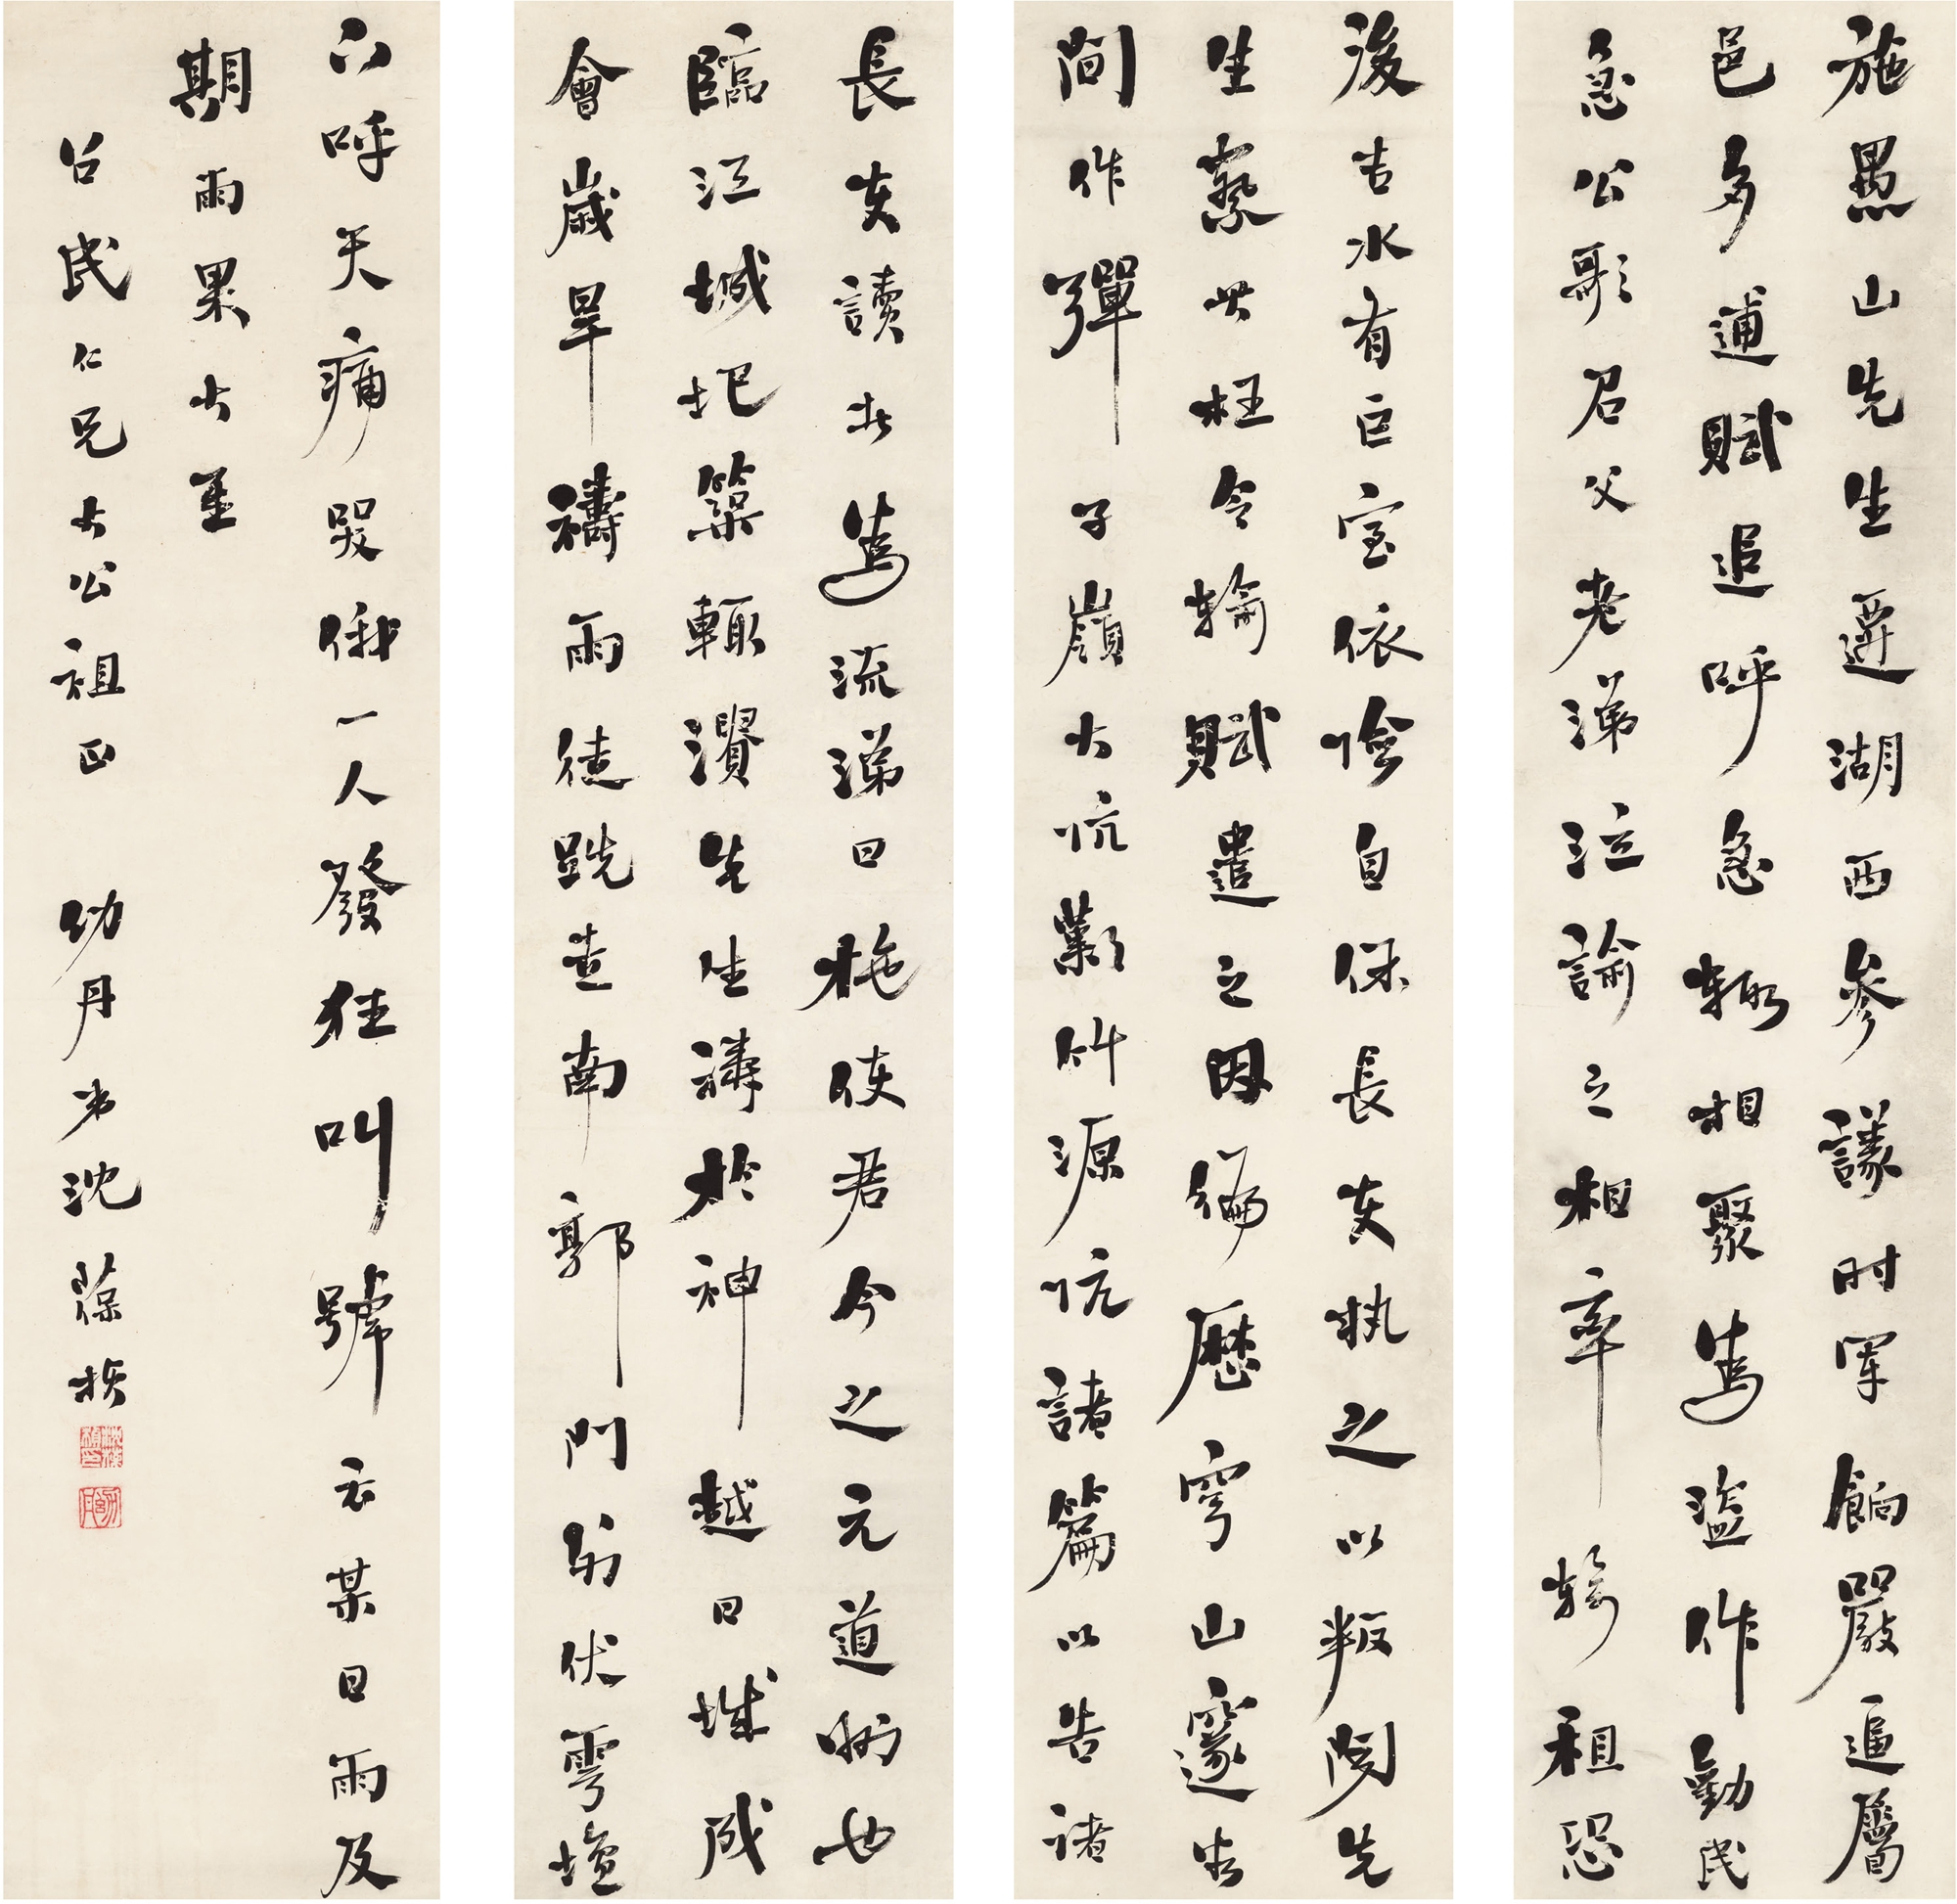 施愚山先生遷湖西參議时軍餉嚴追屬
邑多逋賦追呼急輒相聚為盜作勸民
急公歌召父老涕泣諭之相率輸租恐
後吉水有巨室依險自保長吏執之以叛聞先
生察其枉令輸賦遣之因徧歷穹山邃谷
間作彈子嶺大坑歎竹源坑諸篇以告諸
長吏讀者為流涕曰施使君今之元道州也
臨江城圮築輒潰先生禱於神越日城成
會歲旱禱雨徒跣走南郭門外伏雩壇
下呼天痛哭俄一人發狂叫號云某日雨及
期雨果大至
召民仁兄大公祖正 幼丹弟沈葆楨